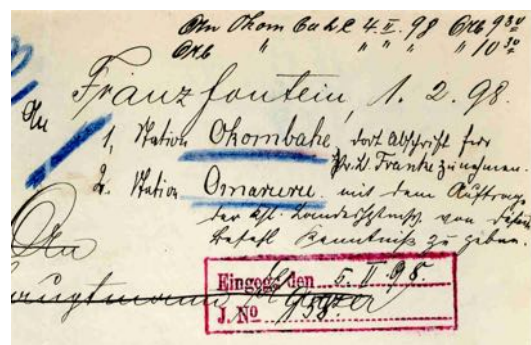 An Okombahe 4. II. 98 Orb 9 30
Orb " " " " " 10 30
Franzfontein, 1. 2. 98.
An
1, Station Okombahe, dort Abschrift für
Pr. Lt. Franke zu nehmen.
2. Station Omaruru mit dem Auftrage
der Ksl. von diesem
Befehl Kenntniß zu geben.
An
Hauptmann
Eingeg. den 5. II. 98.
J. No 138.